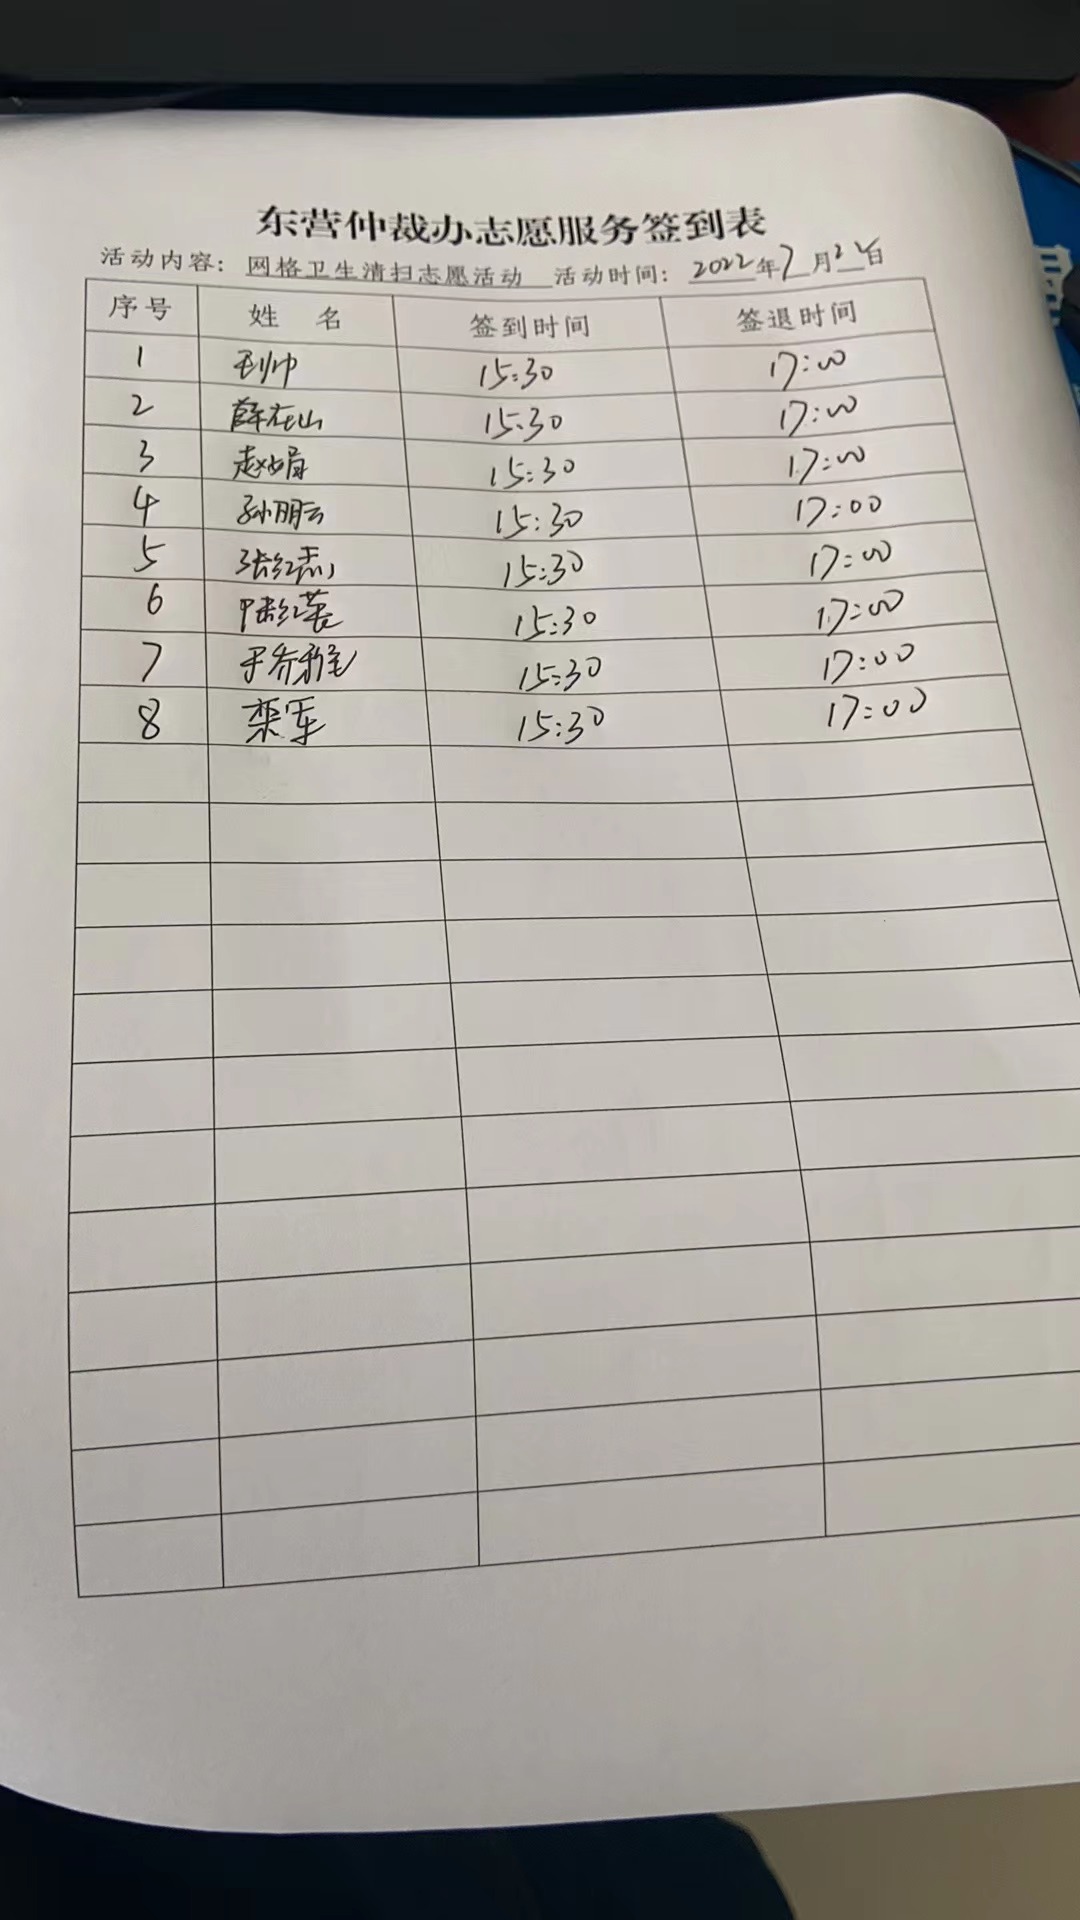 东营仲裁办志愿服务签到表
活动内容：网格卫生清扫志愿活动 活动时间：2022年7月2日
序号 姓名 签到时间 签退时间
1 15:30 17:00
2 薛在山 15:30 17:00
3 赵娟 15:30 17:00
4 孙朋云 15:30 17:00
5 张红 15:30 17:00
6 红英 15:30 17:00
7 于乔雅 15:30 17:00
8 栾军 15:30 17:00